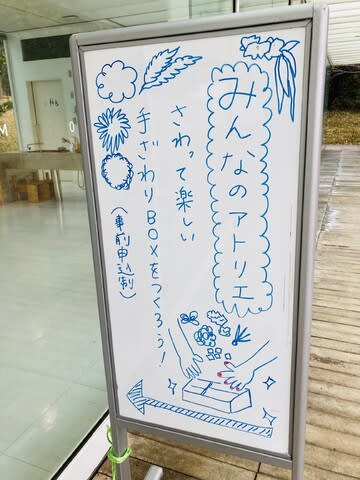 みんなのアトリエ
さわって楽しい
手ざわりBOXをつくろう!
(事前申込制)